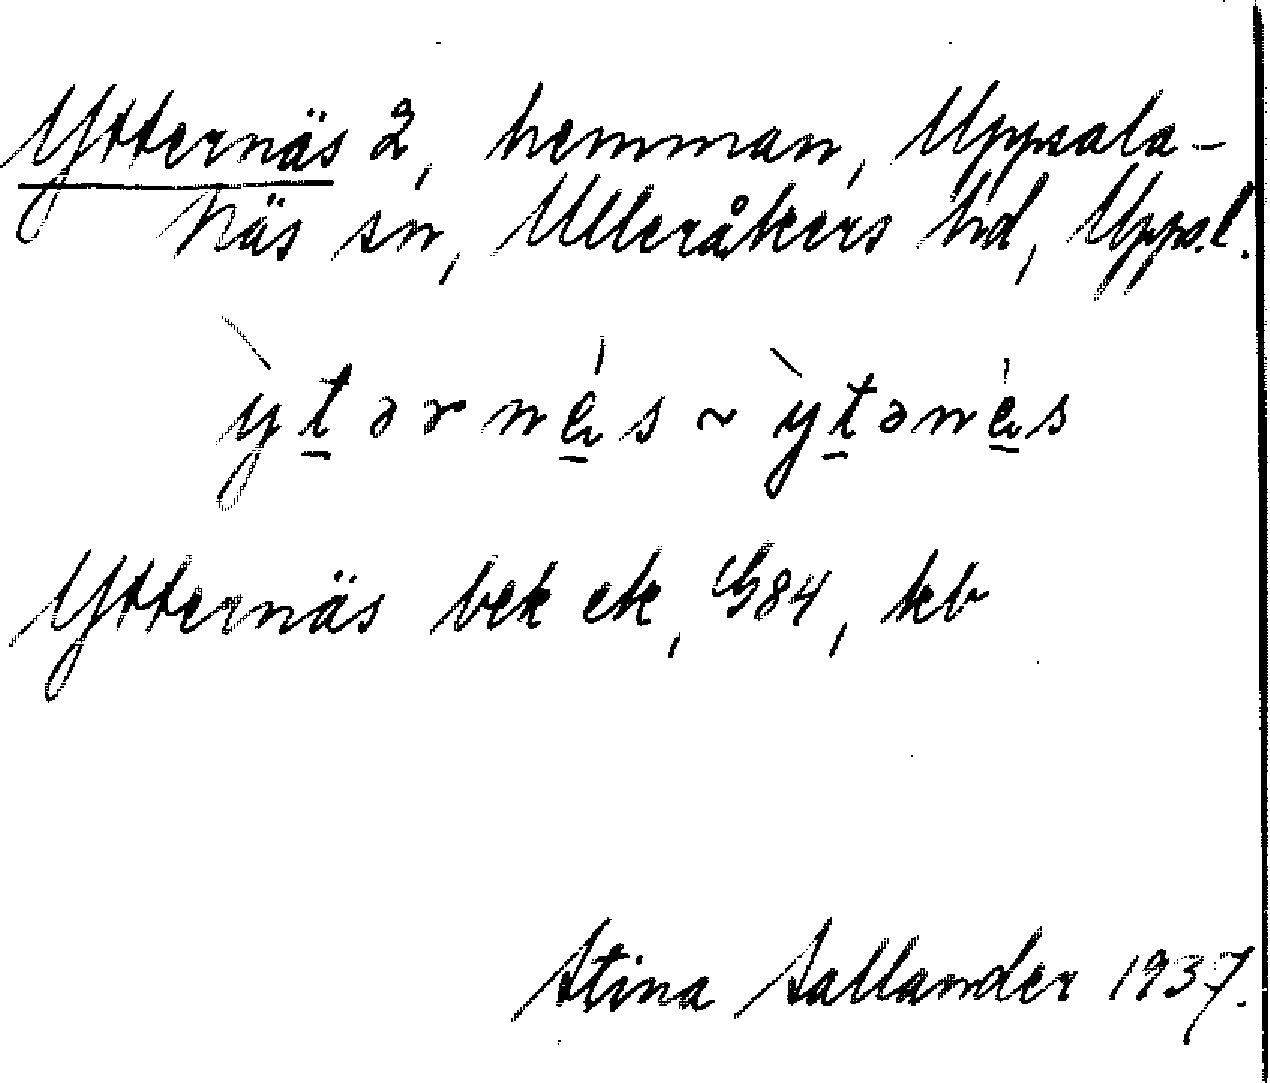 Ytternäs 2, hemman, Uppsala-
Näs sn, Ulleråkers hd, Uppl.
ỳtərnǽs ~ ỳtənǽs
Ytternäs bek ek, G84, kb
Stina Sallander 1937.